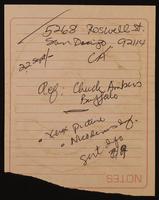 5268 Roswell St.
San Diego, 92114
CA
22 Sept/
Ref: Chuck Ambers
Buffalo
• Xerox Picture
• Nicodemus
Girl
NOTES